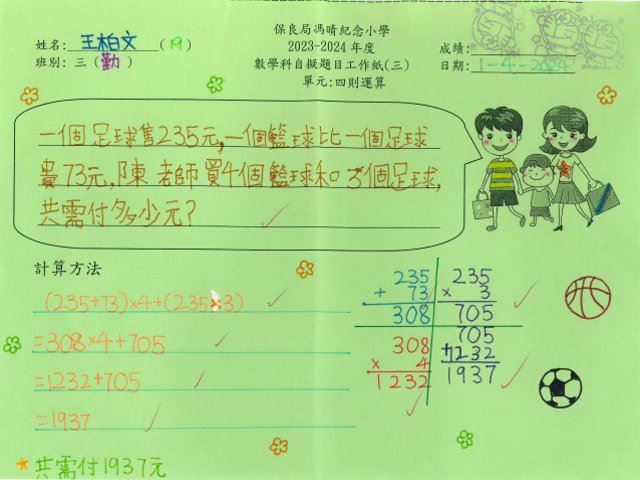 保良局馮晴紀念小學
姓名: 王柏文 (19)
2023-2024 年度
成績:
班別: 三 (勤)
數學科自擬題目工作紙(三)
日期: 1-4-2024
單元:四則運算
一個足球售235元,一個籃球比一個足球
貴73元,陳老師買4個籃球和3個足球,
共需付多少元?
計算方法
(235+73)×4+(235×3)
=308×4+705
=1232+705
=1937
235
+ 73
308
235
× 3
705
308
× 4
1232
705
+1232
1937
★共需付1937元